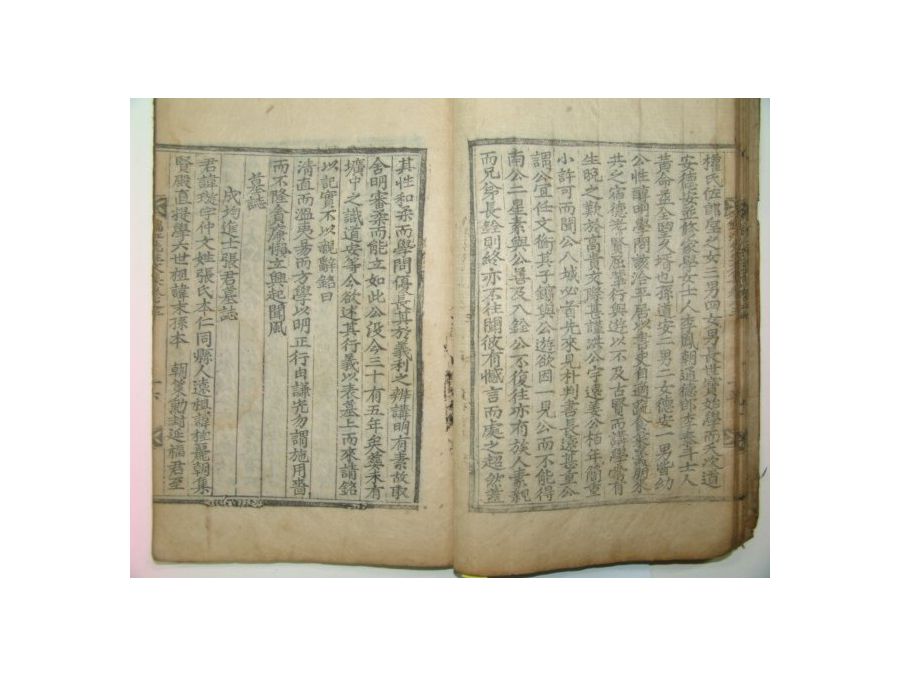 權氏佐郞崖之女三男四女男長世實始學而夭次道
安德安並修家學女士人李鳳朝通德郎李泰斗士人
黃侖並全
公性醇明學問該洽平居以書史自適疏食
共之宿德孝賢屈輩行與遊以不及古賢而講學當有
生晚之歎於高貴交際甚謹洪公宇遠姜公栢年簡重
小許可而聞公入城必首先來見朴判書長遠甚重公
謂公宜任文衡其子鑌與公遊欲因一見公而不能得
南公二星素與公善及入銓公不復往亦有族人素親
而兄爺長銓則終亦不往聞彼有憾言而處之超然蓋
其性和柔而學問優長其於義利之辨講明有素故取
舍明審柔而能立如此公沒今三十有五年矣葬未有
壙中之識道安等今欲述其行義以表墓上而來請銘
以記實不以觀辭銘曰
清直而溫夷易而方學以明正行由謙光勿謂施用嗇
而不隆貪廉懦立興起聞風
墓誌
成均進士張君墓誌
君諱璇字仲文姓張氏本仁同縣人遠祖諱桂麗朝集
賢殿直提學六世祖諱末孫本 朝策勳封延福君至